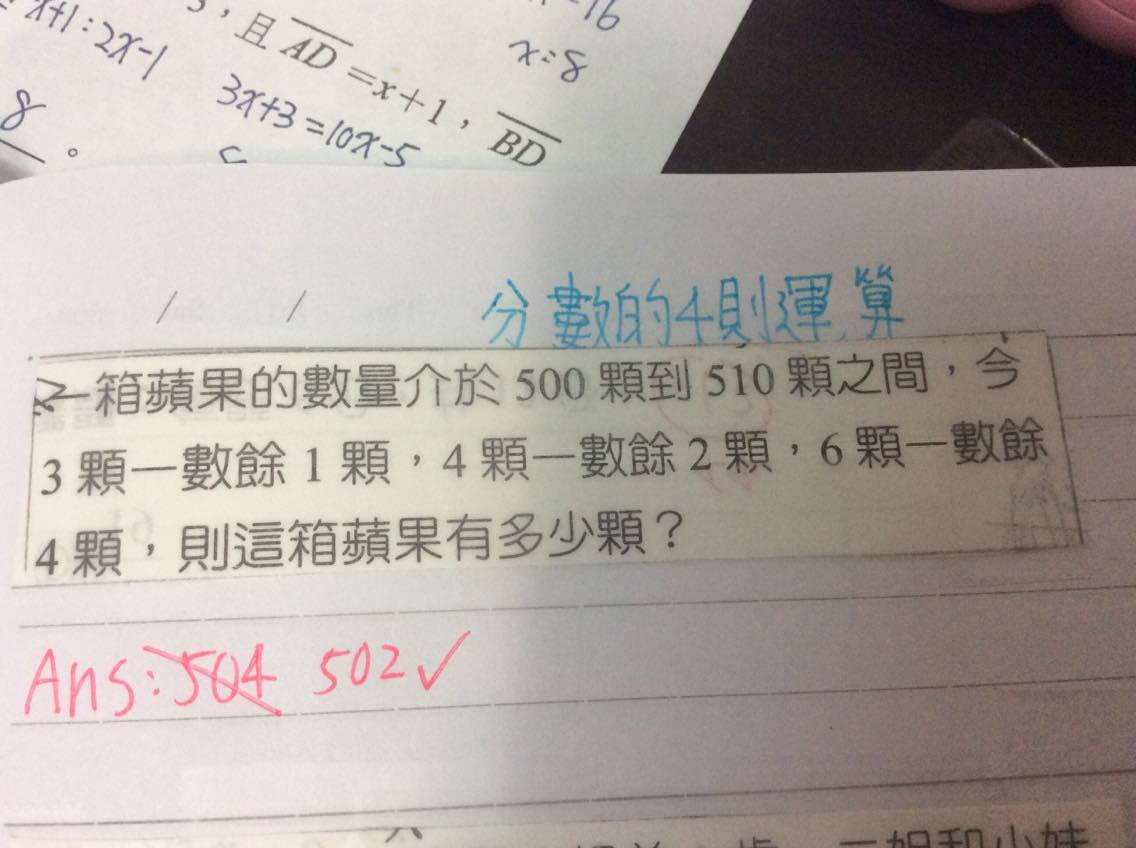 x+1:2x-1
，且 AD=x+1，BD
-16
x=8
8
。
3x+3=10x-5
分數的4則運算
一箱蘋果的數量介於 500 顆到 510 顆之間，今
3 顆一數餘 1 顆，4 顆一數餘 2 顆，6 顆一數餘
4 顆，則這箱蘋果有多少顆？
Ans:504 502✓